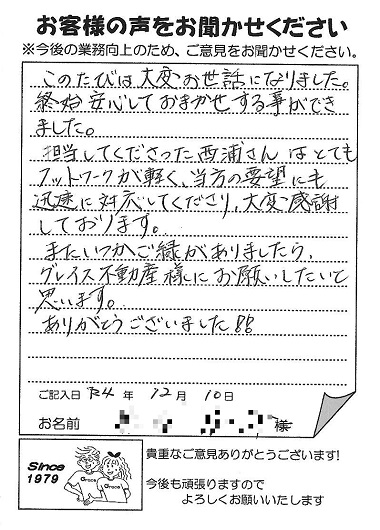 お客様の声をお聞かせください
※今後の業務向上のため、ご意見をお聞かせください。
このたびは大変お世話になりました。
終始安心しておまかせする事ができ
ました。
担当してくださった西浦さんはとても
フットワークが軽く、当方の要望にも
迅速に対応してくださり、大変感謝
しております。
またいつかご縁がありましたら、
グレイス不動産様にお願いしたいと
思います。
ありがとうございました!!
ご記入日 R4年 12月 10日
お名前 様
Since
1979
Grace
Grace
貴重なご意見ありがとうございます!
今後も頑張りますので
よろしくお願いいたします